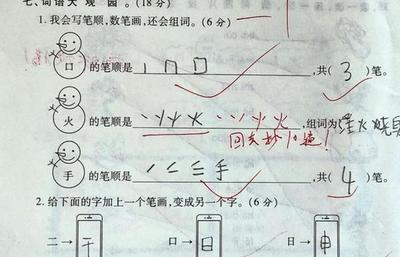 七、词语大观园。(18分)
1.我会写笔顺,数笔画,还会组词。(6分)
口 的笔顺是 丨 冂 口 ,共( 3 )笔。
火 的笔顺是 丶 丷 火 丶 丷 少 火 ,组词为
回去抄10遍!
手 的笔顺是 一 二 三 手 ,共( 4 )笔。
2.给下面的字加上一个笔画,变成另一个字。(6分)
二→ 干 口→ 日 日→ 申